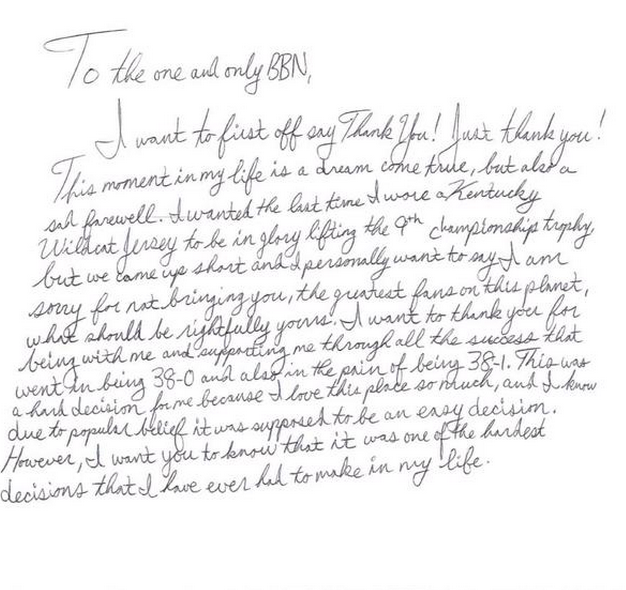 To the one and only BBN,
I want to first off say Thank You! Just thank you!
This moment in my life is a dream come true, but also a
sad farewell. I wanted the last time I wore a Kentucky
Wildcat Jersey to be in glory lifting the 9th championship trophy,
but we came up short and I personally want to say I am
sorry for not bringing you, the greatest fans on this planet,
what should be rightfully yours. I want to thank you for
being with me and supporting me through all the success that
went in being 38-0 and also in the pain of being 38-1. This was
a hard decision for me because I love this place so much, and I know
due to popular belief it was supposed to be an easy decision.
However, I want you to know that it was one of the hardest
decisions that I have ever had to make in my life.